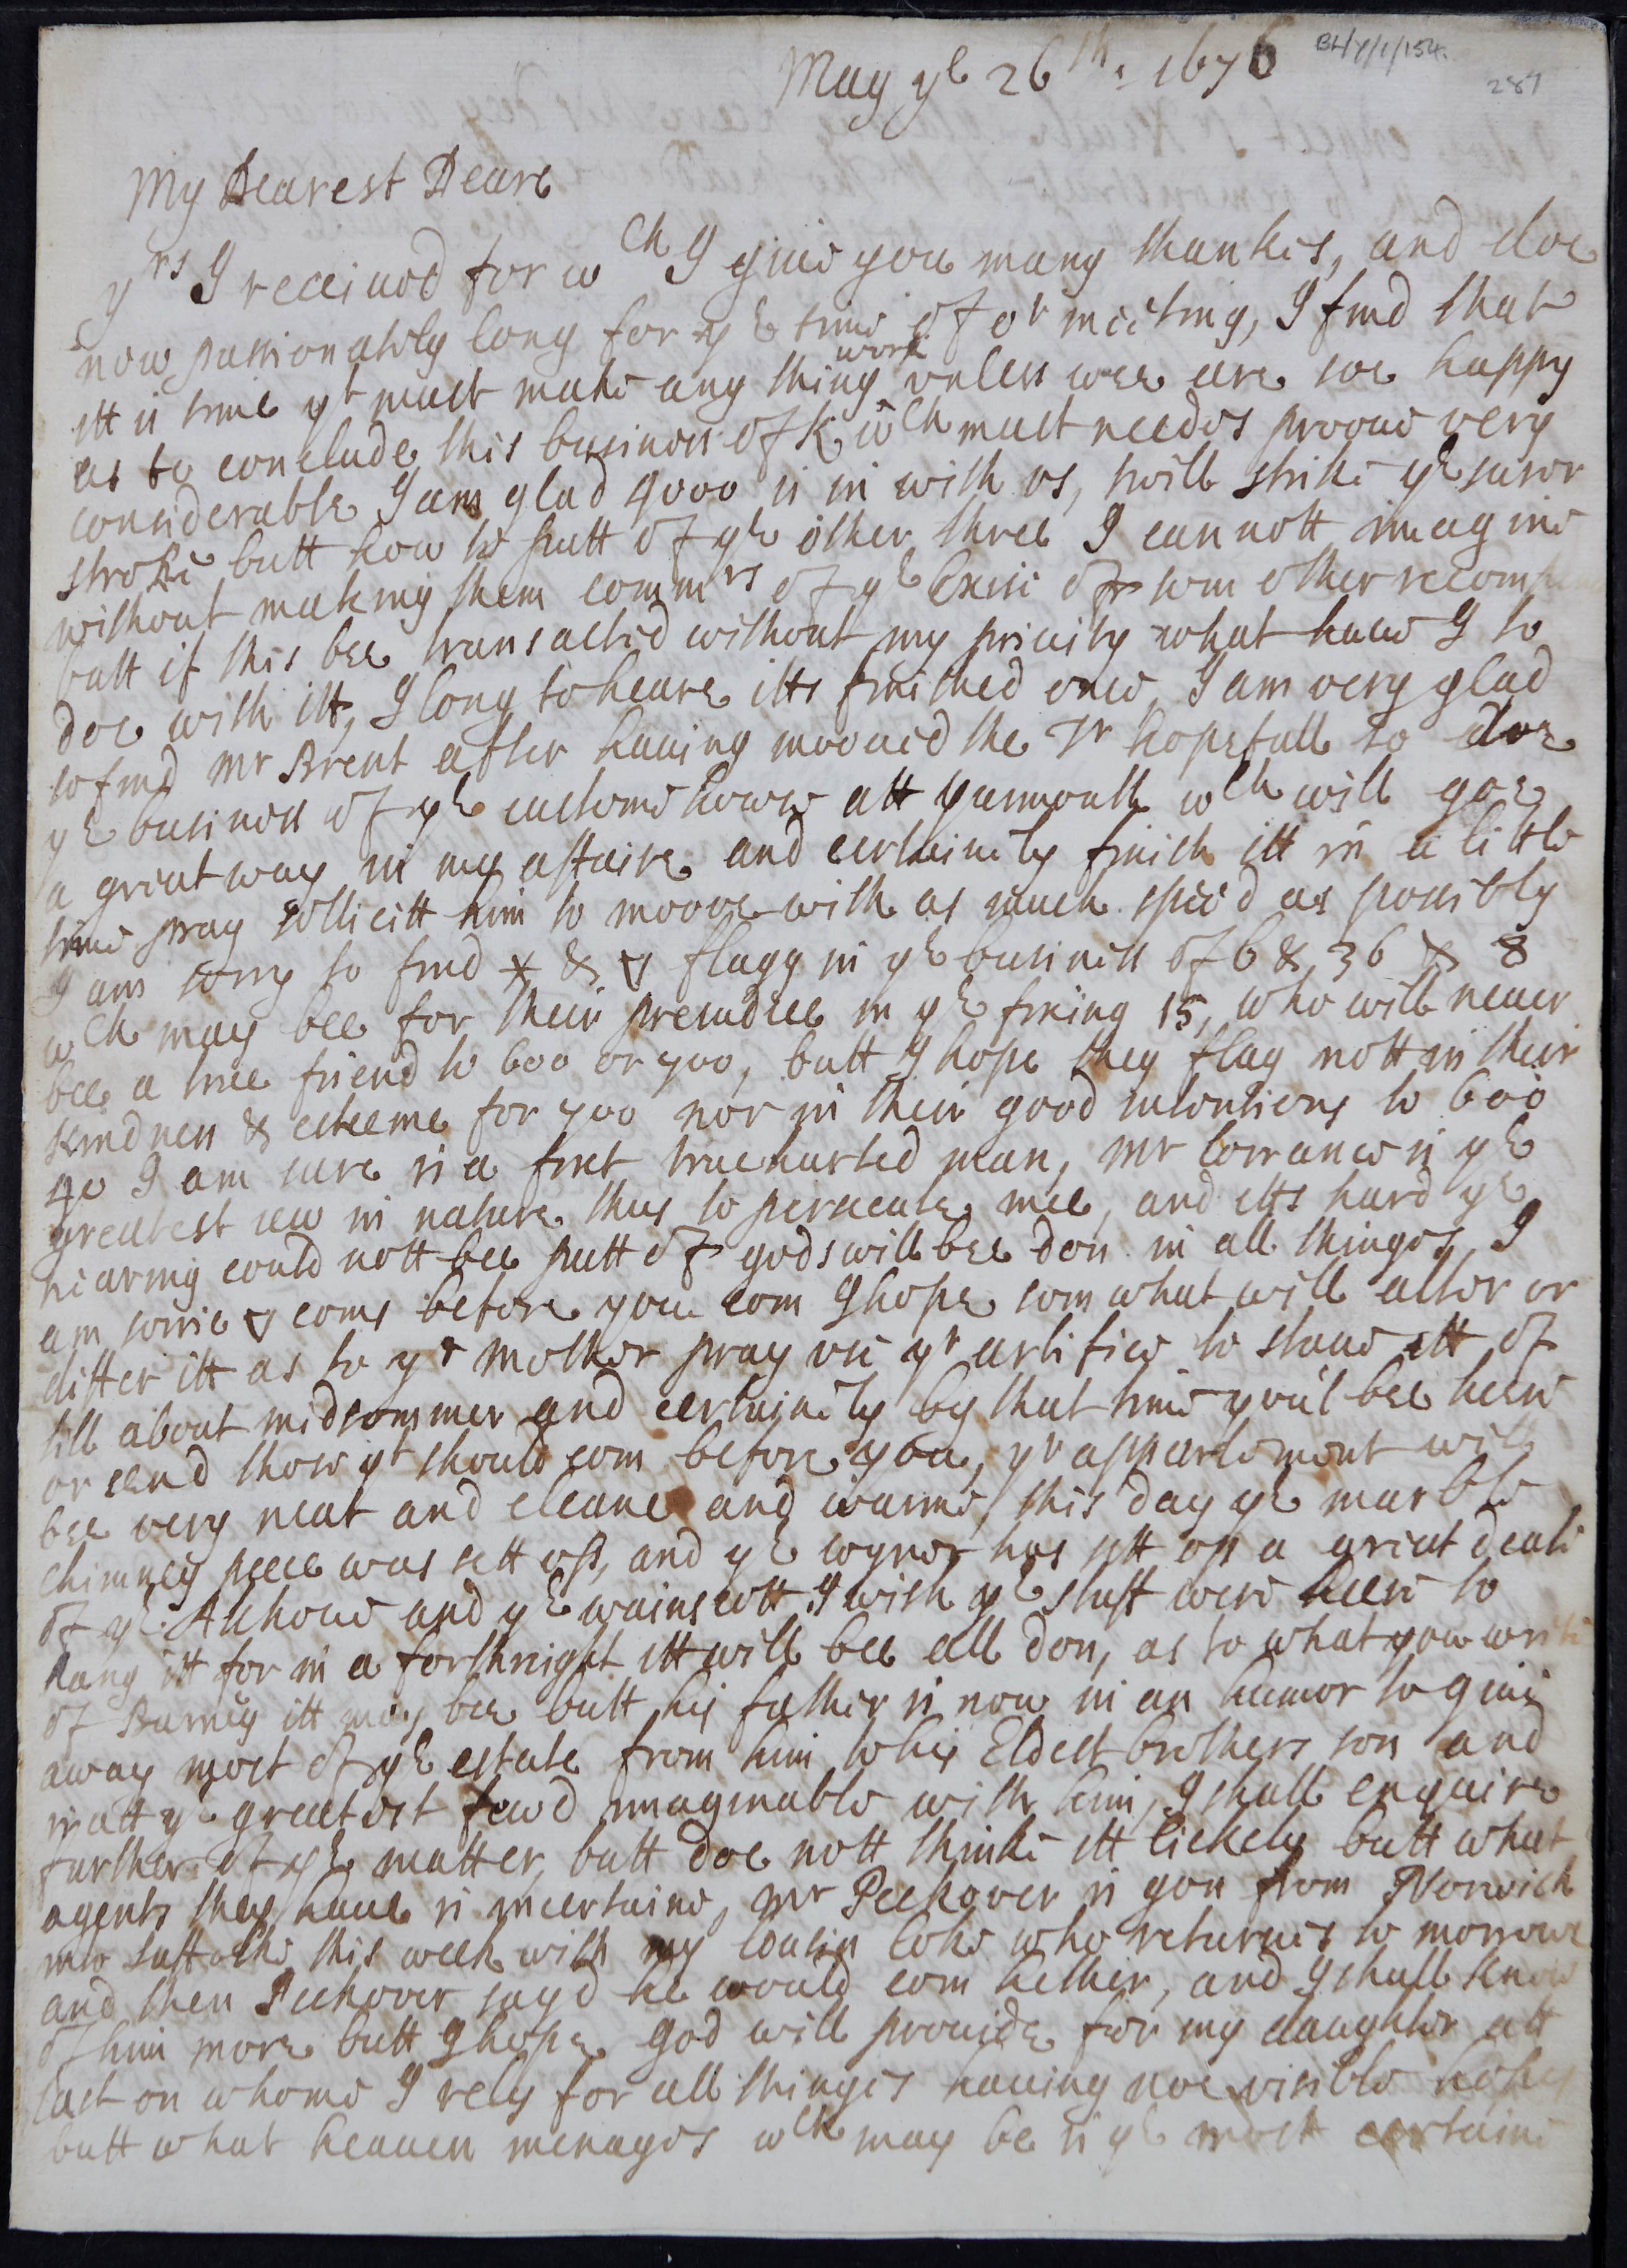 BL/Y/1/154.
287
May ye 26th: 1676
My Dearest Deare
yrs I receiued for wch I giue you many thankes, and doe
now passionatly long for ye time of or meeting, I find that
itt is time yt must make any thing work vnless wee are soe happy
as to conclude this business of K wch must needes prooue very
considerable I am glad 4000 is in with vs, twill strike ye surer
stroke butt how to putt of ye other three I cannott imagine
without making them commrs of ye Excise or som other
butt if this bee transacted without my priuity what haue I to
doe with itt, I long to heare itts finished once, I am very glad
to find Mr Brent after hauing mooued the Tr hopefull to doe
ye business of ye custome house att yarmouth wch will goe
a great way in my affaire and certainely finish itt in a little
time pray sollicitt him to mooue with as much speed as possibly
I am sorry to find & flagg in ye business of 6 & 36 & 8
wch may bee for their preiudice in ye fixing 15, who will neuer
bee a true friend to 600 or 700, butt I hope they flag nott in their
kindness & esteeme for 700 nor in their good intentions to 600
40 I am sure is a fast truehearted man, Mr Corrance is ye
greatest Iew in nature thus to persecute mee, and itts hard ye
hearing could nott bee putt of gods will bee don in all things, I
am sorrie coms before you com I hope som what will alter or
differ itt as to yr Mother pray vse yr artifice to staue itt of
till about midsommer and certainely by that time you'l bee heere
or eend thow yt should com before you, yr appartement will
bee very neat and cleane and warme, this day ye marble
chimney peece was sett vp, and ye ioyner has sett vp a great deale
of ye Alkoue and ye wainscott I wish ye stuff were heere to
hang itt for in a forthnight itt will bee all don, as to what you write
of Burney itt may bee butt his father is now in an humor to giue
away most of ye estate from him to his Eldest brothers son and
is att ye greatest fewd imaginable with him, I shall enquire
further of ye matter, butt doe nott thinke itt lickely butt what
agents they haue is incertaine, Mr Peckover is gon from Norwich
into suffolke this week with my Cousin Coke who returnes to morrow
and then Peckover sayd he would com hether, and I shall know
of him more butt I hope God will prouide for my daughter att
last on whome I rely for all thinges hauing noe visible hopes
butt what heauen menages wch may be is ye most certaine